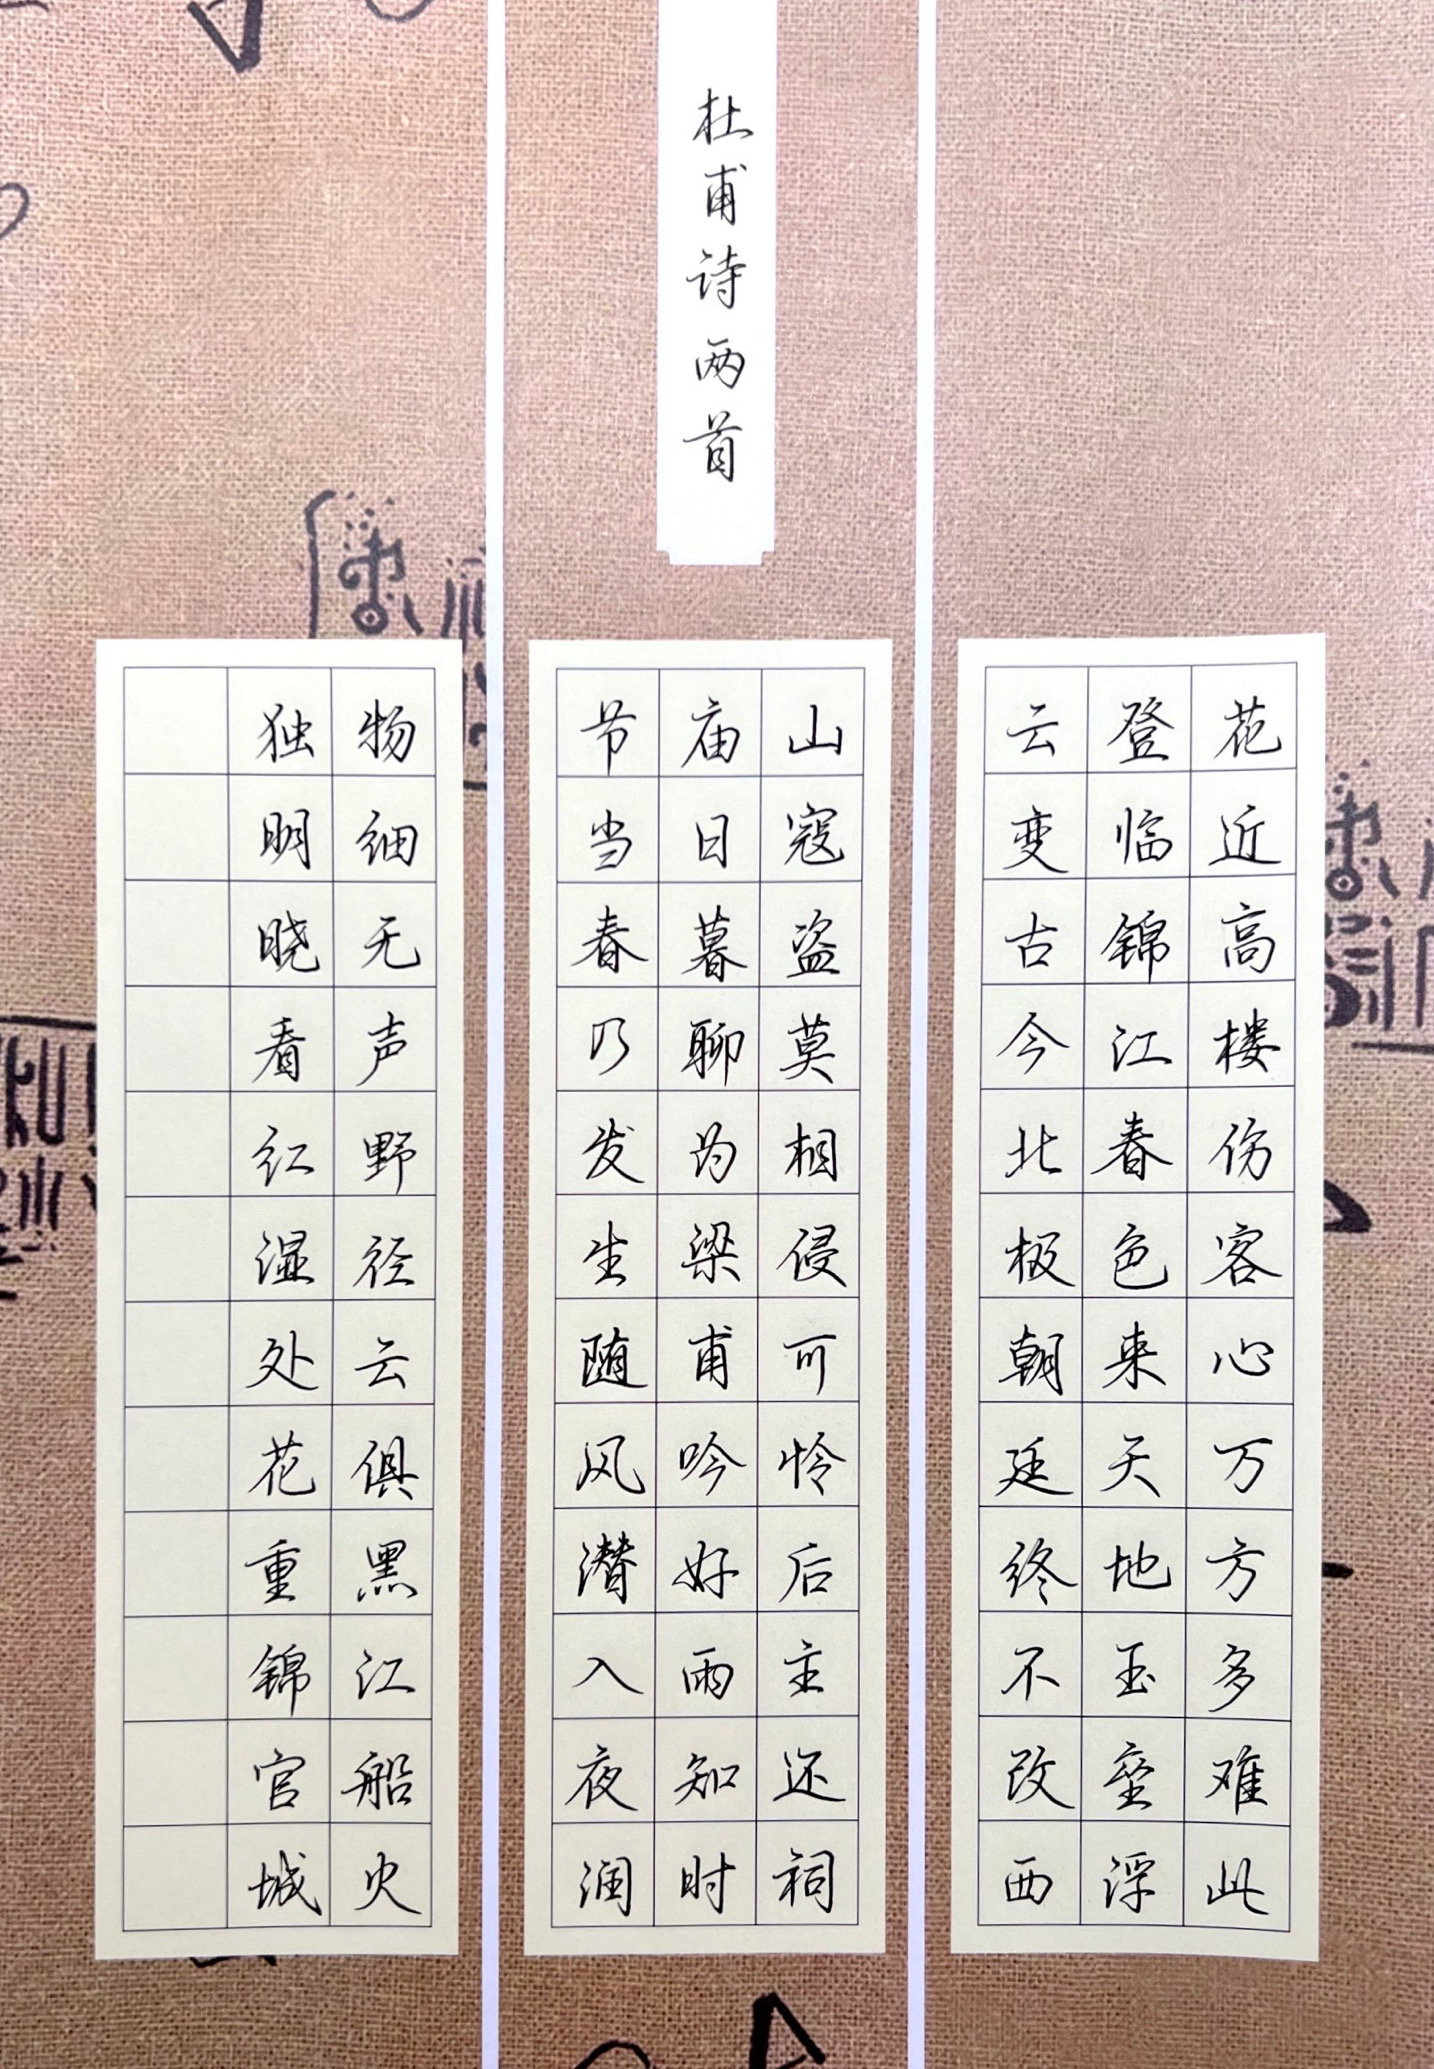 杜甫诗两首
花近高楼伤客心万方多难此
登临锦江春色来天地玉垒浮
云变古今北极朝廷终不改西
山寇盗莫相侵可怜后主还祠
庙日暮聊为梁甫吟好雨知时
节当春乃发生随风潜入夜润
物细无声野径云俱黑江船火
独明晓看红湿处花重锦官城